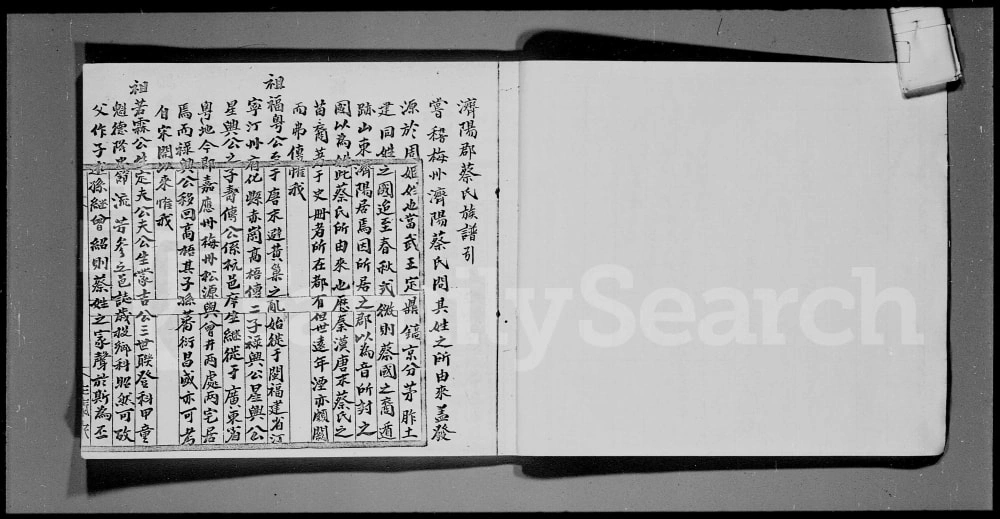 濟陽郡蔡氏族譜引
嘗稽梅州濟陽蔡氏問其姓之所由來盖發
源於周姬姓也當武王定鼎鎬京分茅胙土
建同姓之國迨至春秋式微則蔡國之裔遁
跡山東濟陽居焉因所居之郡以為音所封之
國以為姓此蔡氏所由來也歷秦漢唐宋蔡氏之
苗裔其于史册者所在都有但世遠年湮亦頗闕
而弗傳惟我
祖福粤公至于唐末避黃巢之亂始徙于閩福建省汀
寧汀州府化縣赤崗高梧傳二子祿興公星興公
星興公之子壽傳公係杭邑庠生繼徙于廣東省
粤地今即嘉應州梅州松源興會井兩處両宅居
焉而祿興公移回高梧其子孫蕃衍昌盛亦可考
自宋閩以來惟我
祖苦霖公生定夫公夫公生蒙吉公三世聯登科甲童
魁德隆忠節流芳參之邑誌歲提鄉科昭然可攷
父作子述孫繼曾紹則蔡姓之家聲於斯為丕
FamilySearch